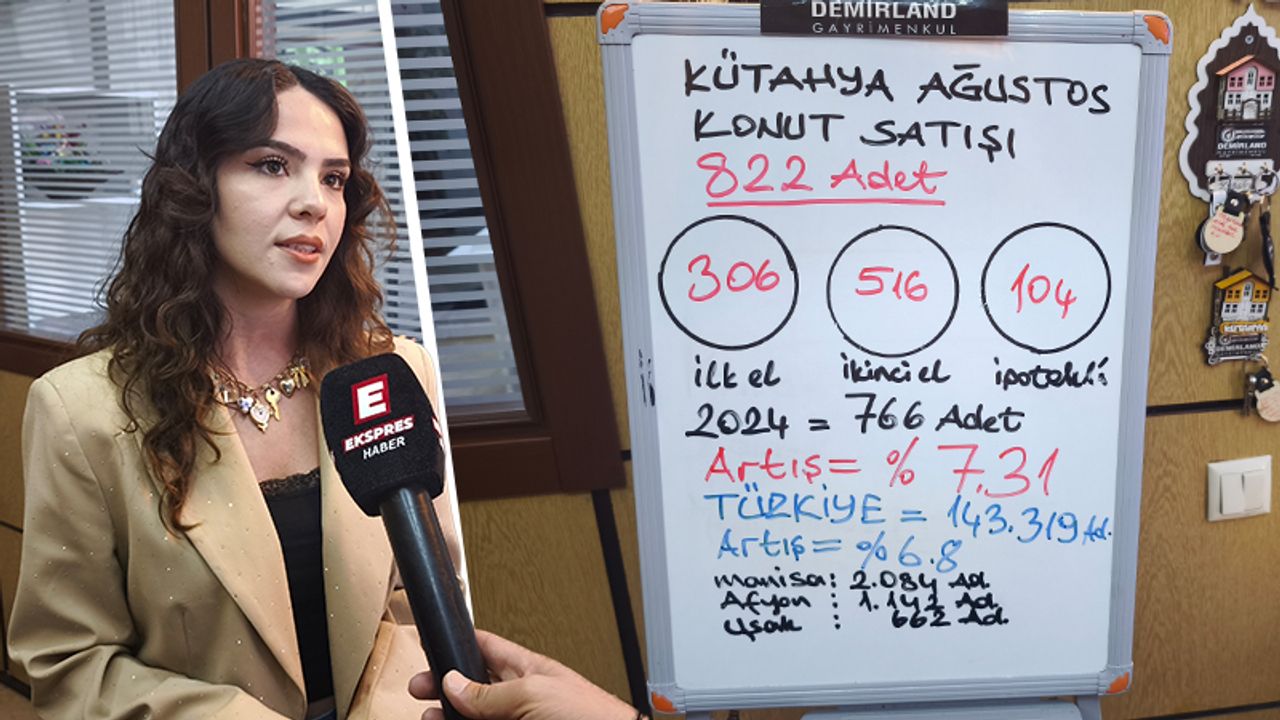 DEMİRLAND
GAYRİMENKUL
KÜTAHYA AĞUSTOS
KONUT SATIŞI
822 Adet
306 516 104
ilk el ikinci el ipotekli
2024 = 766 Adet
Artış = % 7.31
TÜRKİYE = 143.319 Ad.
Artış = %6.8
Manisa: 2.084 Ad.
Afyon : 1.141 Ad.
Uşak : 662 Ad.
E
EKSPRES
HABER
DEMİRLAND
DEMİRLAND